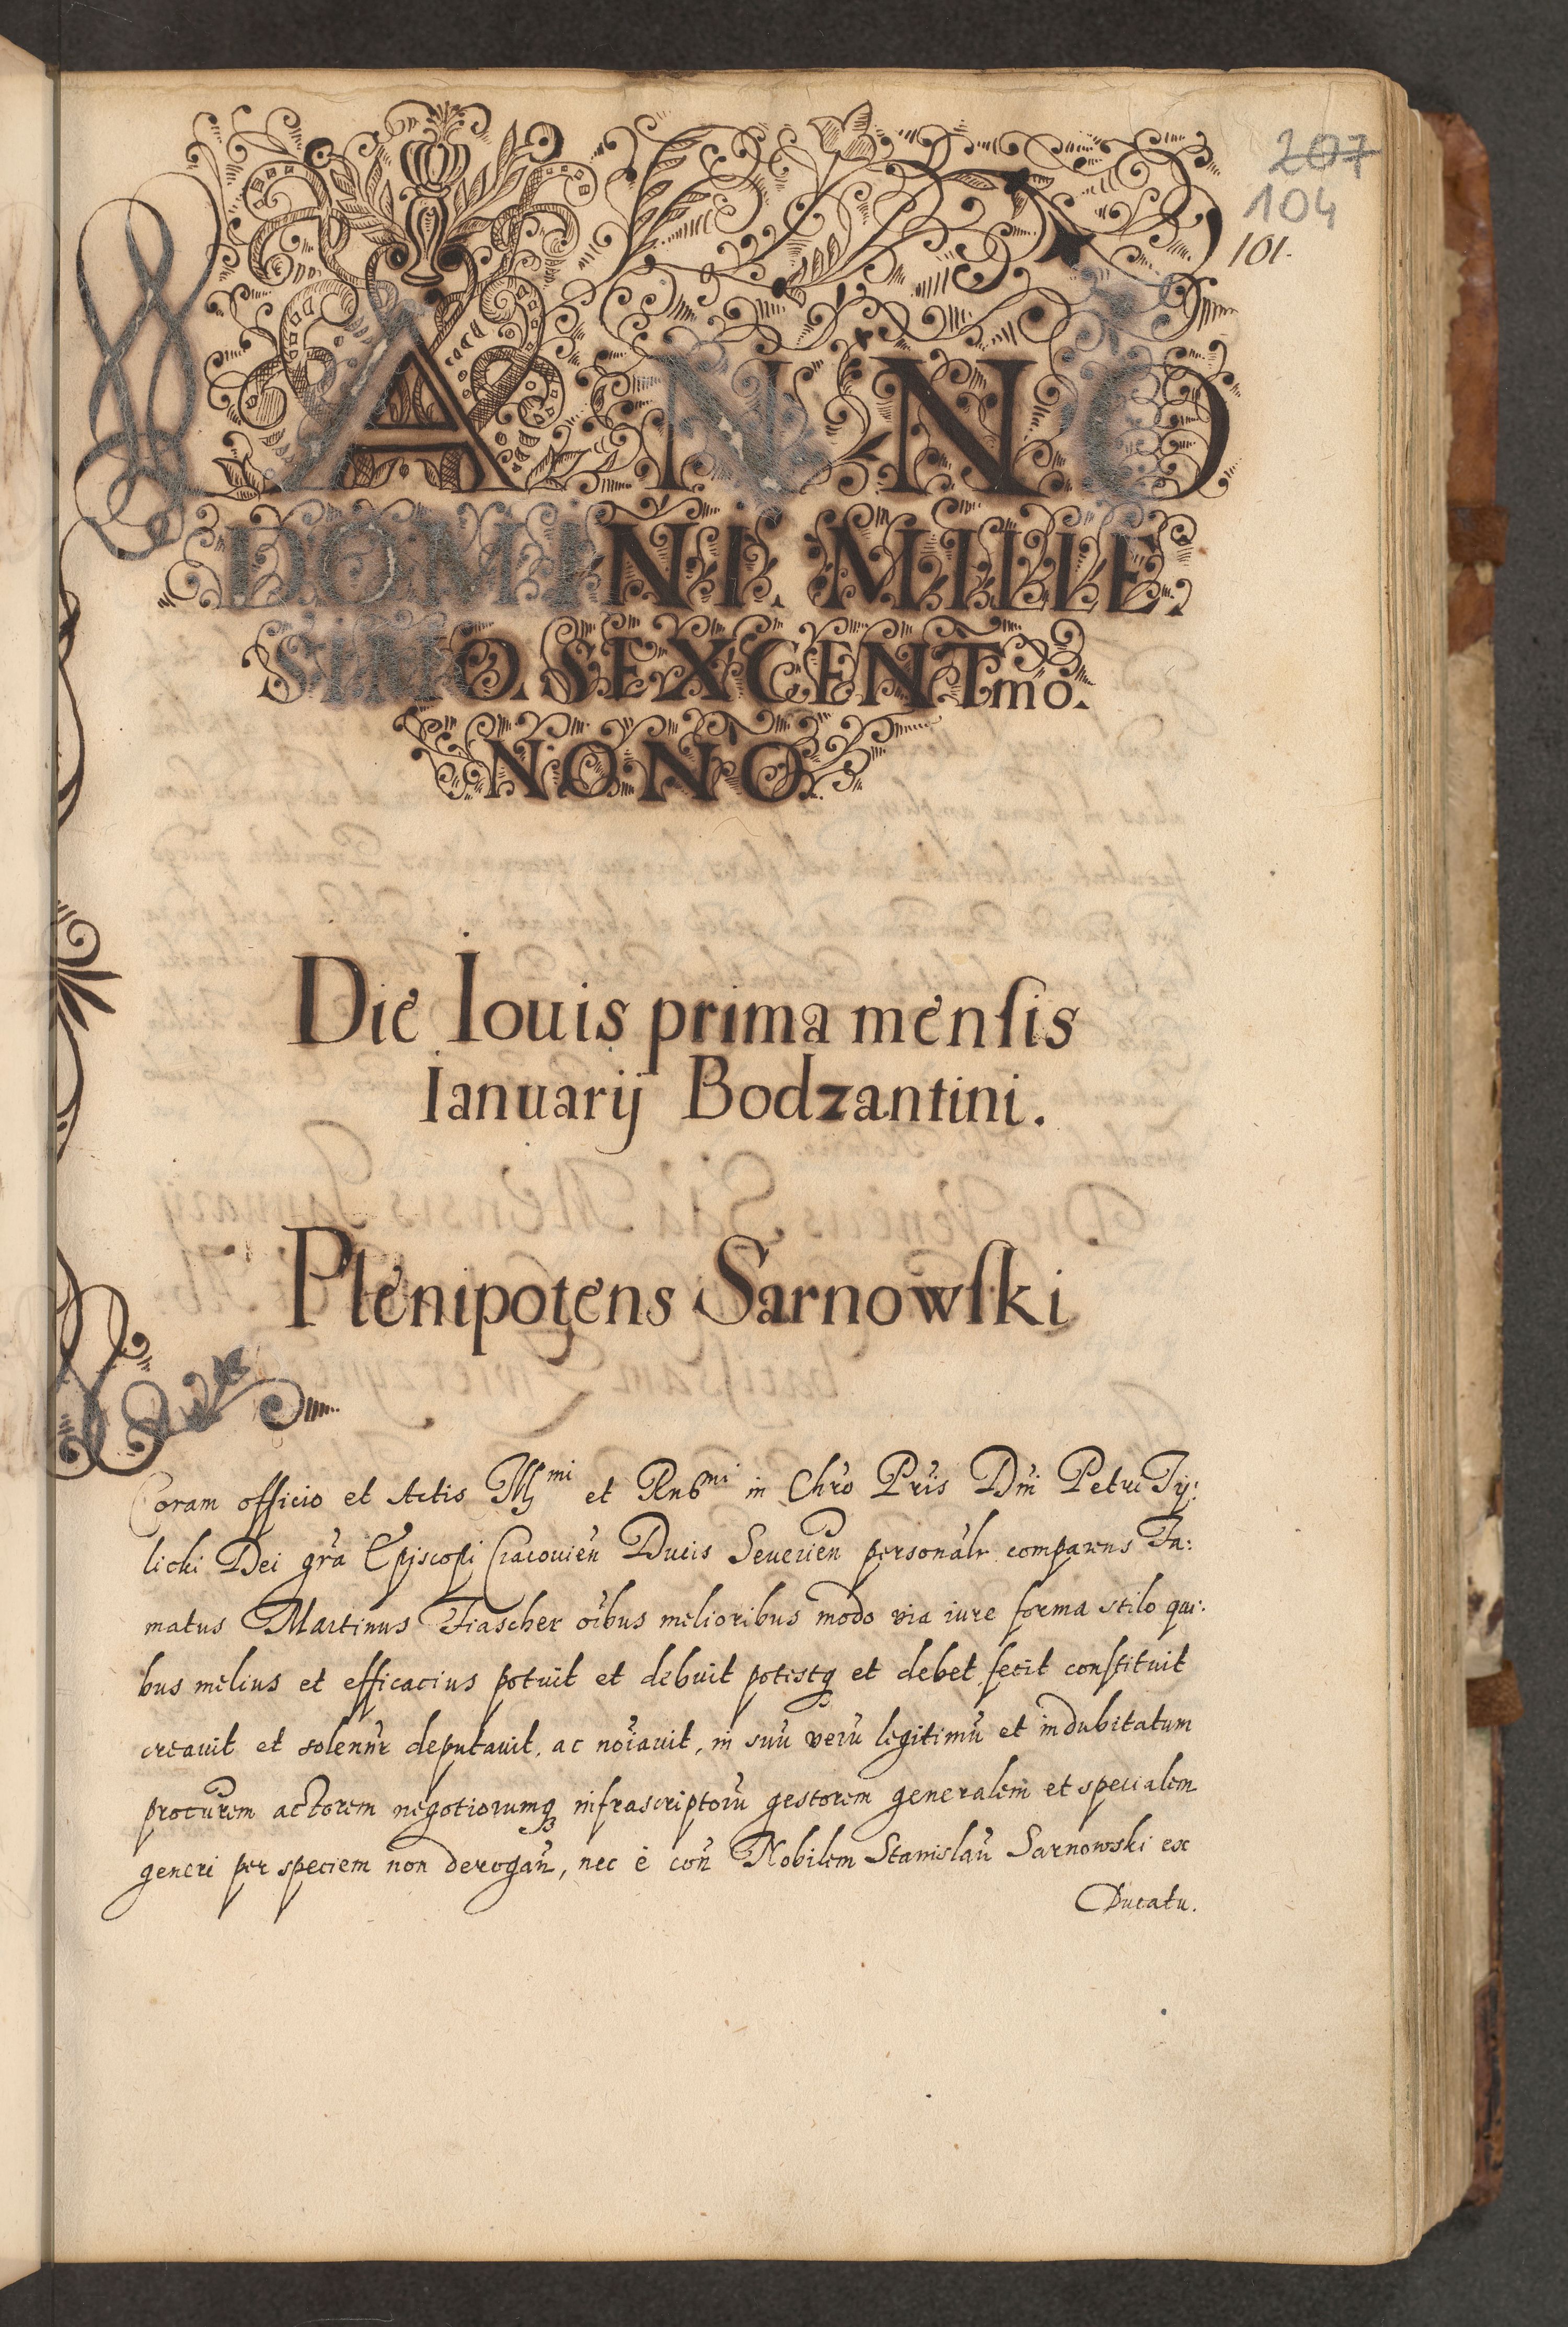 207
104
101.
ANNO
DOMINI. MILLE
SIMO SEXCENTmo.
NONO.
Die Iouis prima mensis
Ianuarij Bodzantini.
Plenipotens Sarnowski
Coram officio et Actis Illmi et Rndmi in Chro Pris Dni Petri Ty:
licki Dei gra Episcopi Cracovien Ducis Severien personalr comparens Fa:
matus Martinus Frascher oibus melioribus modo via iure forma stilo qui:
bus melius et efficacius potuit et debuit potestq et debet fecit constituit
creavit et solennr deputavit, ac noiavit, in suu veru legitimu et indubitatum
procurem actorem negotiorumq infrascriptoru gestorem generalem et specialem
generi per speciem non derogan, nec è con Nobilem Stanislau Sarnowski ex
Ducatu.